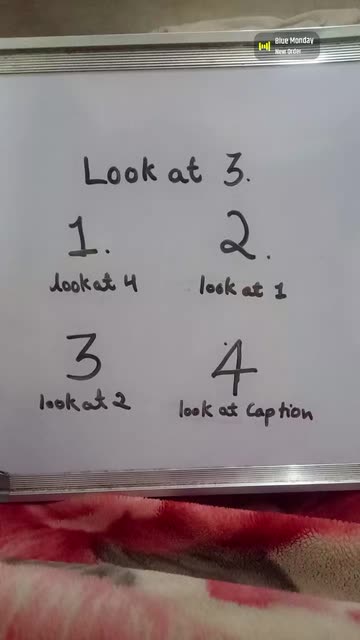 Blue Monday
New Order
Look at 3.
1.
look at 4
2.
look at 1
3
look at 2
4
look at Caption